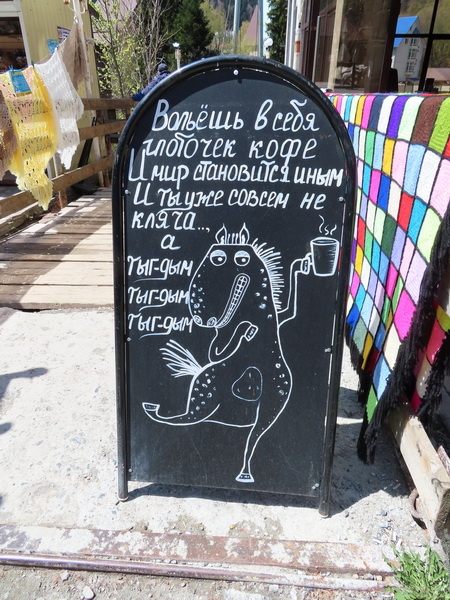 Вольёшь в себя
глоточек кофе
И мир становится иным
И ты уже совсем не
кляча...
а
тыг-дым
тыг-дым
тыг-дым